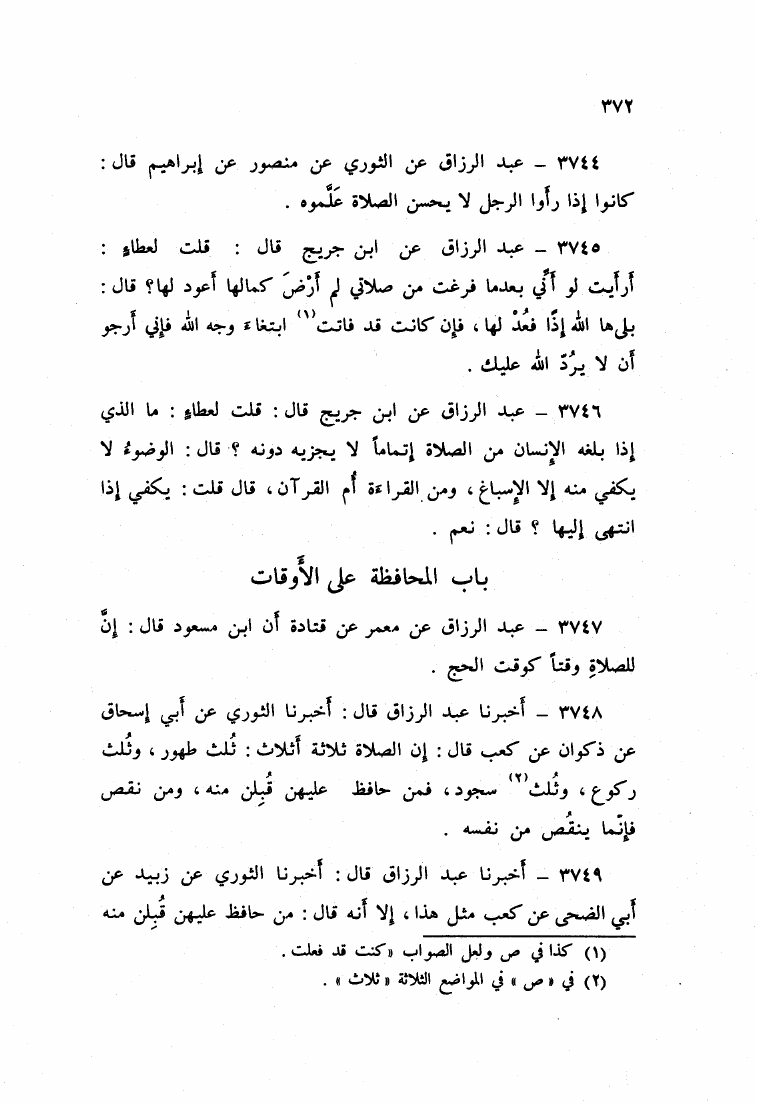 ٣٧٢
٣٧٤٤ – عبد الرزاق عن الثوري عن منصور عن إبراهيم قال :
كانوا إذا رأوا الرجل لا يحسن الصلاة عَلَّموه .
٣٧٤٥ – عبد الرزاق عن ابن جريج قال : قلت لعطاءٍ :
أرأيت لو أنِّي بعدما فرغت من صلاتي لم أَرْضَ كمالها أعود لها؟ قال :
بلى‌ها الله إذًا فعُدْ لها ، فإن كانت قد فاتت(١) ابتغاء وجه الله فإني أرجو
أن لا يرُدّ الله عليك .
٣٧٤٦ – عبد الرزاق عن ابن جريج قال : قلت لعطاءٍ : ما الذي
إذا بلغه الإنسان من الصلاة إتماماً لا يجزيه دونه ؟ قال : الوضوءُ لا
يكفي منه إلا الإسباغ ، ومن القراءة أُم القرآن ، قال قلت : يكفي إذا
انتهى إليها ؟ قال : نعم .
باب المحافظة على الأَوقات
٣٧٤٧ – عبد الرزاق عن معمر عن قتادة أن ابن مسعود قال : إنَّ
للصلاةِ وقتاً كوقت الحج .
٣٧٤٨ – أخبرنا عبد الرزاق قال : أخبرنا الثوري عن أبي إسحاق
عن ذكوان عن كعب قال : إن الصلاة ثلاثة أثلاث : ثُلث طهور ، وثُلث
ركوع ، وثُلث(٢) سجود ، فمن حافظ عليهن قُبِلن منه ، ومن نقص
فإنّما ينقُص من نفسه .
٣٧٤٩ – أخبرنا عبد الرزاق قال : أخبرنا الثوري عن زبيد عن
أبي الضحى عن كعب مثل هذا ، إلا أنه قال : من حافظ عليهن قُبِلن منه
(١) كذا في ص ولعل الصواب «كنت قد فعلت .
(٢) في « ص » في المواضع الثلاثة « ثلاث » .